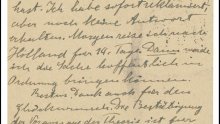 hast. Ich habe sofort reklamiert,
aber noch keine Antwort
erhalten. Morgen reise ich nach
Holland für 14 Tage. Dann werde
ich die Sache hoffentlich in
Ordnung bringen können.
Besten Dank auch für den
Glückwunsch. Die Bestätigung
der Theorie ist